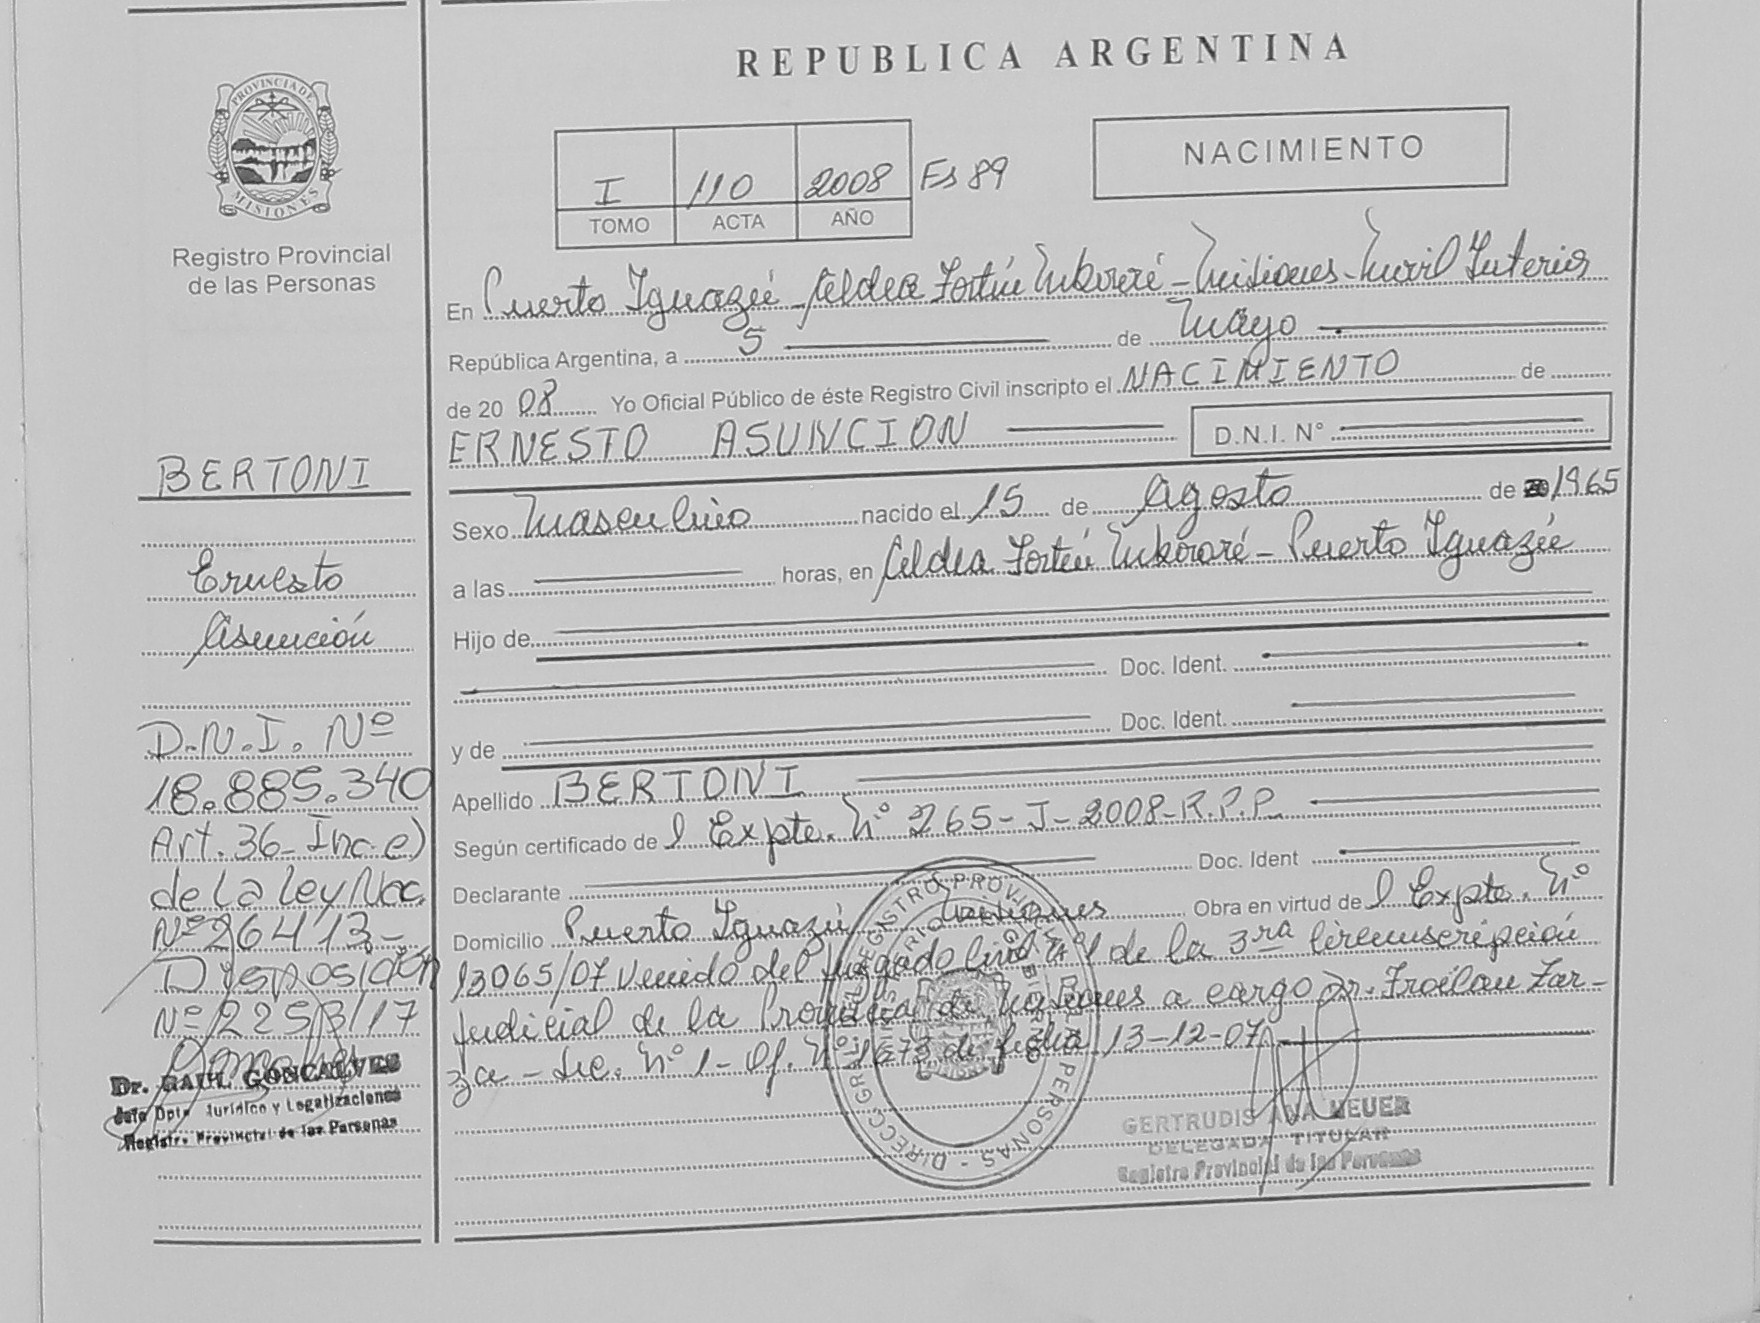 REPUBLICA ARGENTINA
PROVINCIA DE
MISIONES
Registro Provincial
de las Personas
I 110 2008 Fs 89
TOMO ACTA AÑO
NACIMIENTO
En Puerto Iguazú - Aldea Fortín Mbororé - Misiones -
República Argentina, a 5 de Mayo
de 20 08 Yo Oficial Público de éste Registro Civil inscripto el NACIMIENTO de
ERNESTO ASUNCION D.N.I. N°
Sexo Masculino nacido el 15 de Agosto de 1965
a las horas, en Aldea Fortín Mbororé - Puerto Iguazú
Hijo de
Doc. Ident.
y de Doc. Ident.
Apellido BERTONI
Según certificado de l Expte. N° 265-J-2008-R.P.P.
Declarante Doc. Ident
Domicilio Puerto Iguazú Misiones Obra en virtud de l Expte. N°
13065/07 Venido del Juzgado Civil N° 1 de la 3ra Circunscripción
Judicial de la Provincia de Misiones a cargo Dr. Froilan Zar-
za - Sec. N° 1 - Of. N° 1673 de fecha 13-12-07
GERTRUDIS ANA MEUER
DELEGADA TITULAR
Registro Provincial de las Personas
BERTONI
Ernesto
Asunción
D.N.I. Nº
18.885.340
Art. 36 - Inc. e)
de La Ley Nac.
Nº 26413 -
Disposición
Nº 2253/17
Dr. RAUL GONCALVES
Jefe Dpto. Jurídico y Legalizaciones
Registro Provincial de las Personas